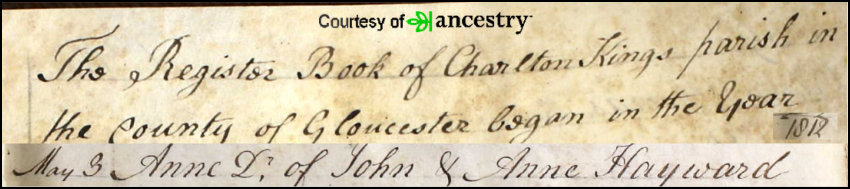 Courtesy of ancestry
The Register Book of Charlton Kings parish in
the County of Gloucester began in the Year
1812
May 3 Anne Dr. of John & Anne Hayward